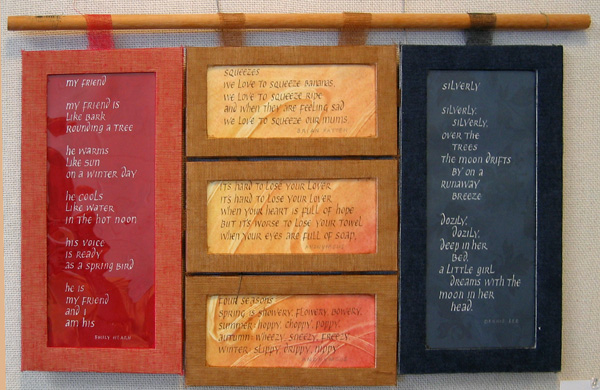 my friend
my friend is
like bark
rounding a tree
he warms
like sun
on a winter day
he cools
like water
in the hot noon
his voice
is ready
as a spring bird
he is
my friend
and i
am his
Emily Hearn
squeezes
we love to squeeze bananas,
we love to squeeze ripe
and when they are feeling sad
we love to squeeze our mums.
Brian Patten
it's hard to lose your lover
it's hard to lose your lover
when your heart is full of hope
but it's worse to lose your towel
when your eyes are full of soap.
four seasons
spring is showery, flowery, bowery,
summer: hoppy, choppy, poppy,
autumn: wheezy, sneezy, freezy,
winter: slippy, drippy, nippy
silverly
silverly,
silverly,
over the
trees
the moon drifts
by on a
runaway
breeze
dozily,
dozily,
deep in her
bed,
a little girl
dreams with the
moon in her
head.
Dennis Lee